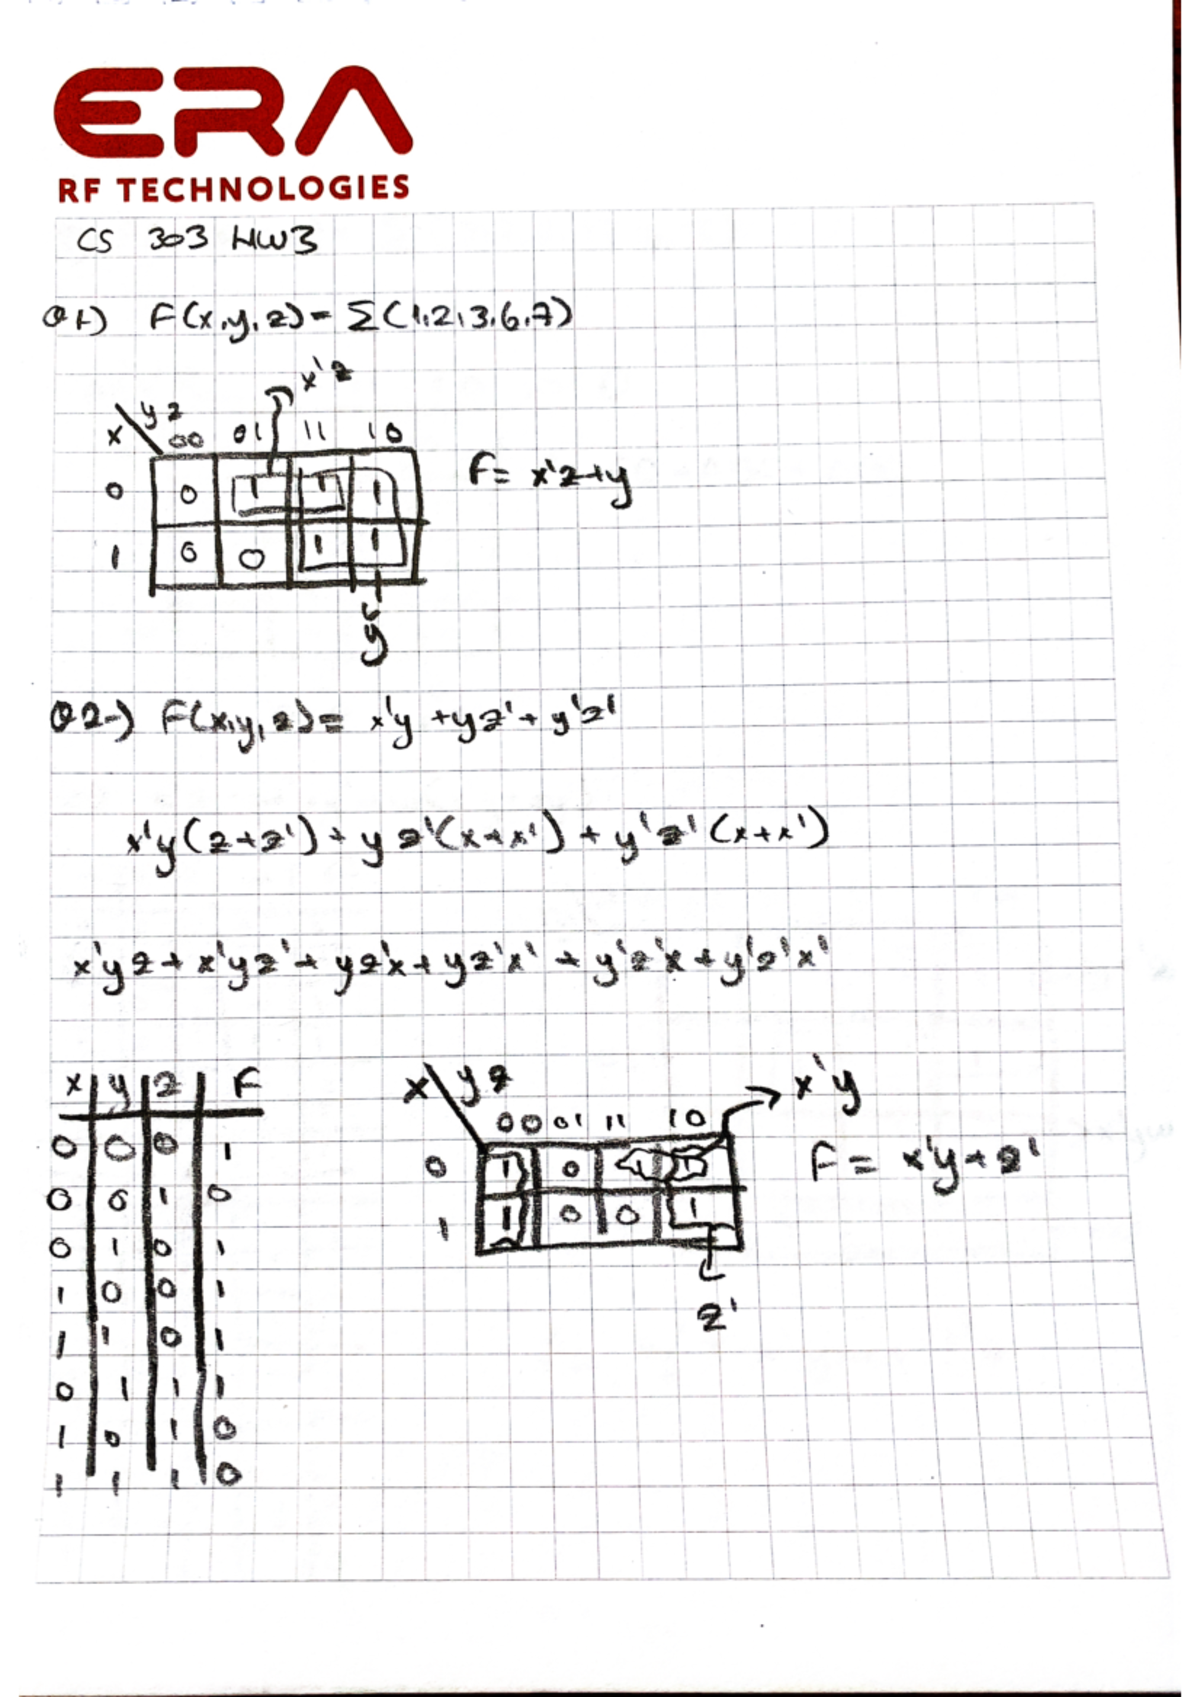 ERA
RF TECHNOLOGIES
CS 303 HW3
Q1) F(x,y,z) = Σ(1,2,3,6,7)
x'z
x\yz 00 01 11 10
0 0 1 1 1
F = x'z+y
1 0 0 1 1
y
Q2-) F(x,y,z) = x'y + yz' + y'z'
x'y(z+z') + yz'(x+x') + y'z'(x+x')
x'yz + x'yz' + yz'x + yz'x' + y'z'x + y'z'x'
x y z F
0 0 0 1
0 0 1 0
0 1 0 1
1 0 0 1
1 1 0 1
0 1 1 1
1 0 1 0
1 1 1 0
x\yz
00 01 11 10
x'y
0 1 0 1 1
F = x'y + z'
1 1 0 0 1
z'